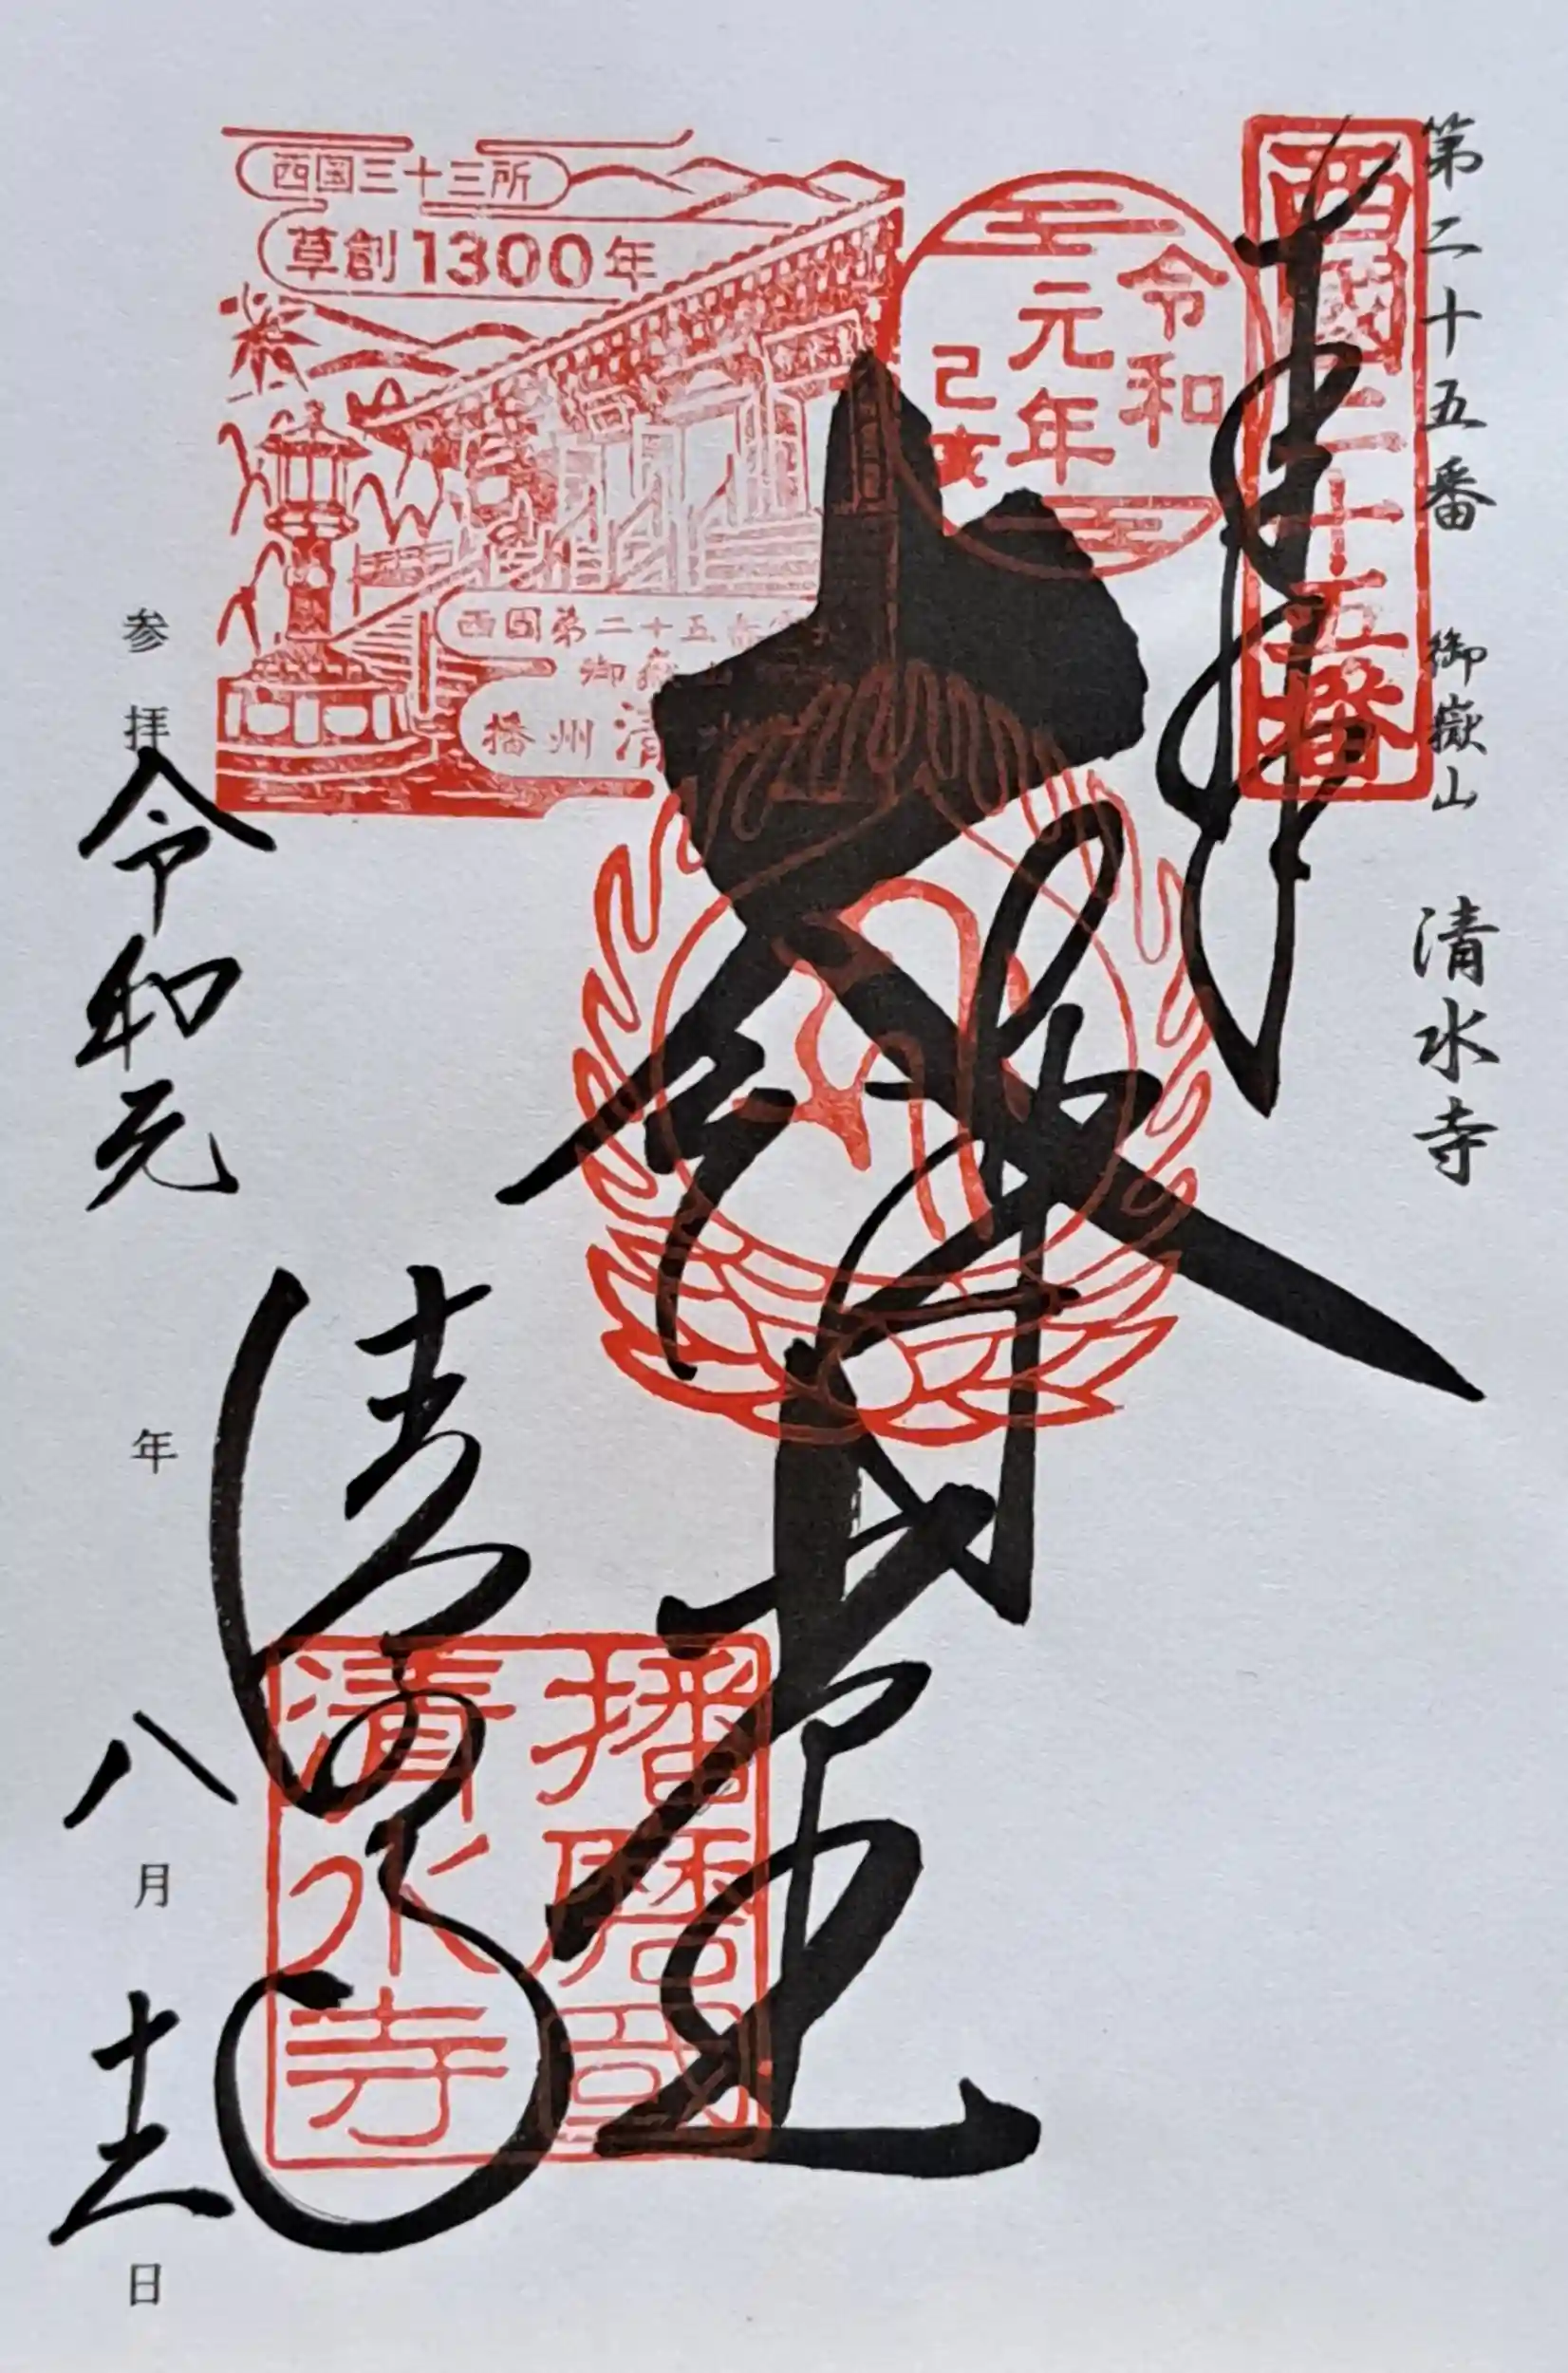 第二十五番 御嶽山 清水寺
西國二十五番
奉拝
令和
元年
己亥
西国三十三所
草創1300年
西国第二十五番
御嶽山
播州 清水
大悲殿
播磨國
清水寺
清水寺
参拝 令和元年 八月十二日